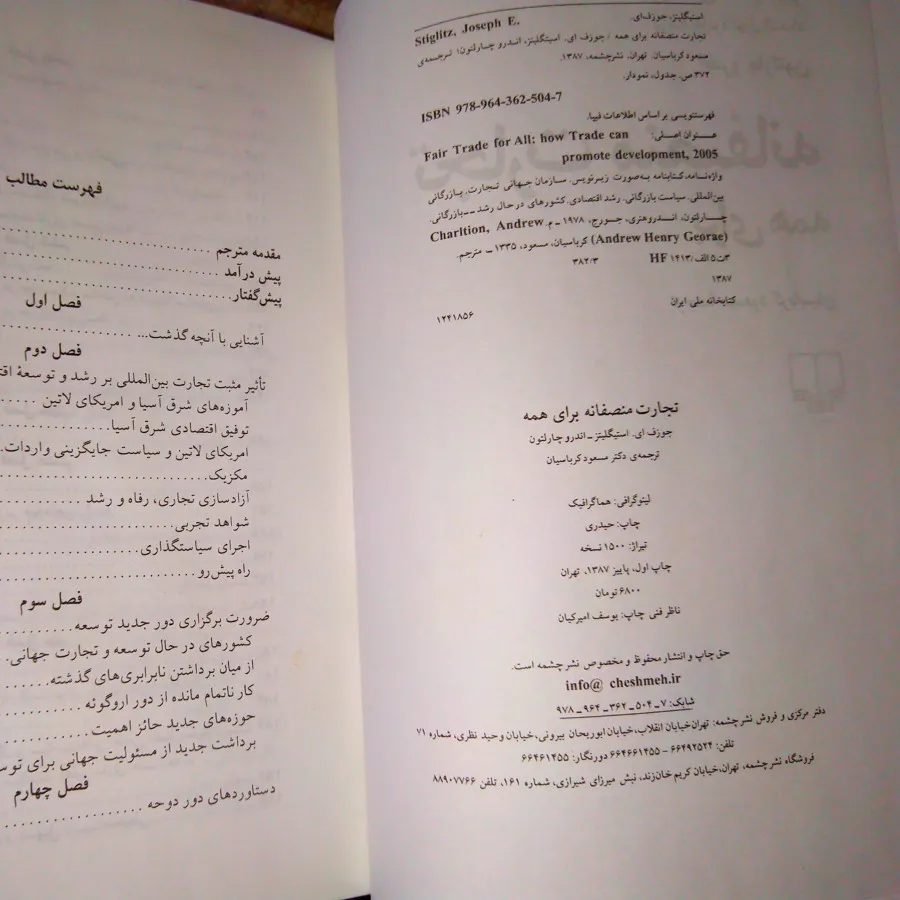 استیگلیتز، جوزف‌ای.
Stiglitz, Joseph E.
تجارت منصفانه برای همه / جوزف ای. استیگلیتز، اندرو چارلتون؛ ترجمه‌ی
مسعود کرباسیان. تهران. نشرچشمه، ۱۳۸۷.
۳۷۲ ص. جدول، نمودار.
ISBN 978-964-362-504-7
فهرستنویسی بر اساس اطلاعات فیپا.
عنوان اصلی: Fair Trade for All: how Trade can
promote development, 2005
واژه‌نامه، کتابنامه به‌صورت زیرنویس. سازمان جهانی تجارت. بازرگانی
بین‌المللی. سیاست بازرگانی. رشد اقتصادی. کشورهای در حال رشد ــ بازرگانی.
چارلتون، اندرو هنری، جورج، ۱۹۷۸ ـ م. Charltion, Andrew
(Andrew Henry Georae) کرباسیان، مسعود، ۱۳۳۵ ـ مترجم.
۳ت۵الف/ HF ۱۴۱۳ ۳۸۲/۳
۱۳۸۷
کتابخانه ملی ایران
۱۲۴۱۸۵۶
تجارت منصفانه برای همه
جوزف ای. استیگلیتز ـ اندرو چارلتون
ترجمه‌ی دکتر مسعود کرباسیان
لیتوگرافی: هماگرافیک
چاپ: حیدری
تیراژ: ۱۵۰۰ نسخه
چاپ اول، پاییز ۱۳۸۷، تهران
۶۸۰۰ تومان
ناظر فنی چاپ: یوسف امیرکیان
حق چاپ و انتشار محفوظ و مخصوص نشرچشمه است.
info@ cheshmeh.ir
شابک: ۷ ـ ۵۰۴ ـ ۳۶۲ ـ ۹۶۴ ـ ۹۷۸
دفتر مرکزی و فروش نشرچشمه: تهران، خیابان انقلاب، خیابان ابوریحان بیرونی، خیابان وحید نظری، شماره ۷۱
تلفن: ۶۶۴۹۲۵۲۴ ـ ۶۶۴۶۱۴۵۵ دورنگار: ۶۶۴۶۱۴۵۵
فروشگاه نشرچشمه، تهران، خیابان کریم خان‌زند، نبش میرزای شیرازی، شماره ۱۶۱، تلفن ۸۸۹۰۷۷۶۶
فهرست مطالب
مقدمه مترجم
پیش درآمد
پیش‌گفتار
فصل اول
آشنایی با آنچه گذشت...
فصل دوم
تأثیر مثبت تجارت بین‌المللی بر رشد و توسعهٔ
آموزه‌های شرق آسیا و امریکای لاتین
توفیق اقتصادی شرق آسیا
امریکای لاتین و سیاست جایگزینی واردات
مکزیک
آزادسازی تجاری، رفاه و رشد
شواهد تجربی
اجرای سیاستگذاری
راه پیش‌رو
فصل سوم
ضرورت برگزاری دور جدید توسعه
کشورهای در حال توسعه و تجارت جهانی
از میان برداشتن نابرابری‌های گذشته
کار ناتمام مانده از دور اروگوئه
حوزه‌های جدید حائز اهمیت
برداشت جدید از مسئولیت جهانی برای
فصل چهارم
دستاوردهای دور دوحه